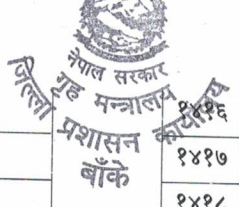 नेपाल सरकार
गृह मन्त्रालय
जिल्ला प्रशासन कार्यालय
बाँके
१४१६
१४१७
१४१८